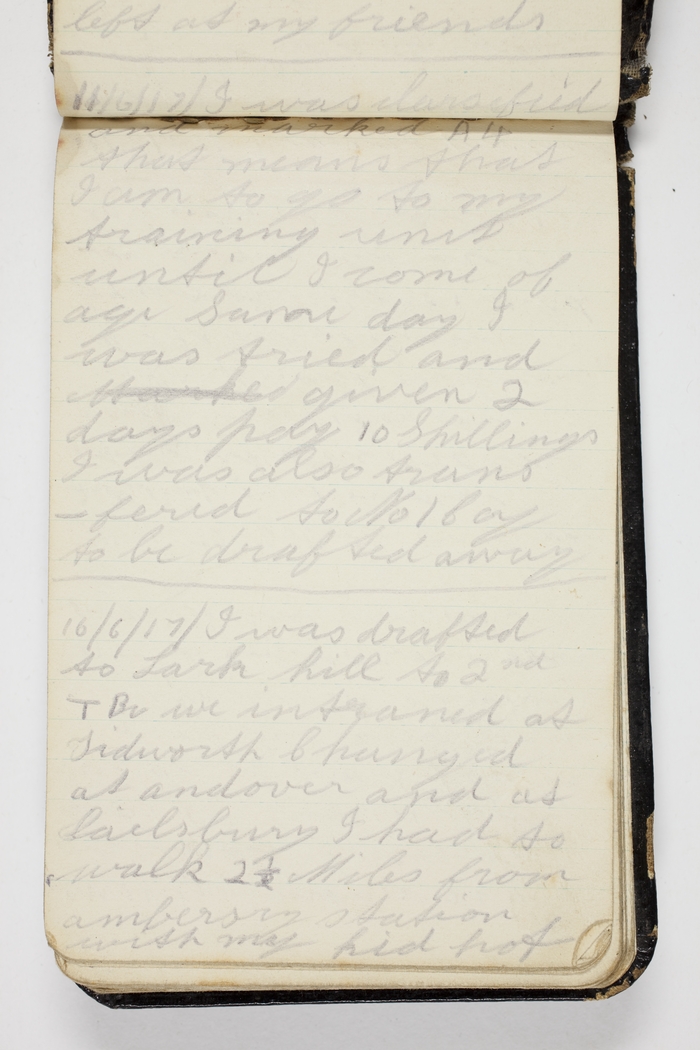 left at my friends
11/6/17/ I was clarsified
and marked A4
that means that
I am to go to my
training unit
until I come of
age Same day I
was tried and
Marked given 2
days pay 10 Shillings
I was also trans
-fered to No 1 Coy
to be drafted away
16/6/17/ I was drafted
to Lark hill to 2nd
T Bn we intraned at
Tidworth Changed
at andover and at
Sailsbury I had to
walk 2½ Miles from
ambersry station
with my kid hot